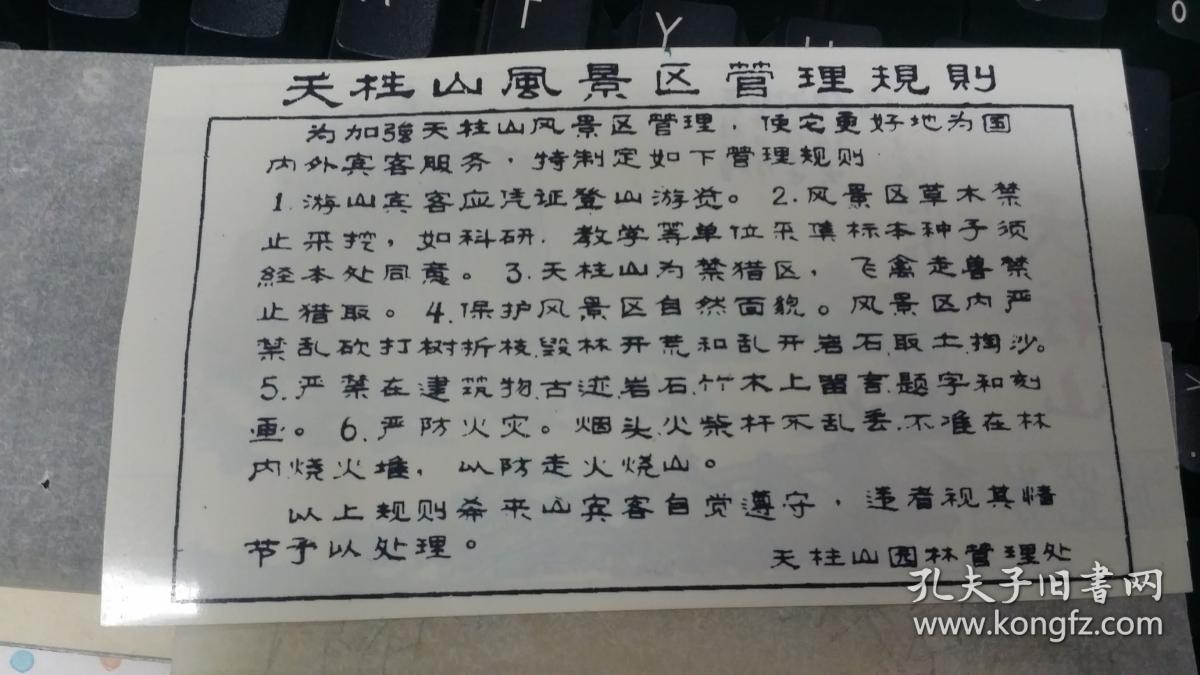 天柱山風景区管理規則
为加強天柱山风景区管理，使它更好地为国
内外宾客服务，特制定如下管理规则
1.游山宾客应凭证登山游览。2.风景区草木禁
止采挖，如科研、教学等单位采集标本种子须
经本处同意。3.天柱山为禁猎区，飞禽走兽禁
止猎取。4.保护风景区自然面貌。风景区内严
禁乱砍打树折枝、毁林开荒和乱开岩石、取土、掏沙。
5.严禁在建筑物、古迹、岩石、竹木上留言、题字和刻
画。6.严防火灾。烟头、火柴杆不乱丢、不准在林
内烧火堆，以防走火烧山。
以上规则希来山宾客自觉遵守，违者视其情
节予以处理。
天柱山园林管理处
孔夫子旧书网
www.kongfz.com
T
Y